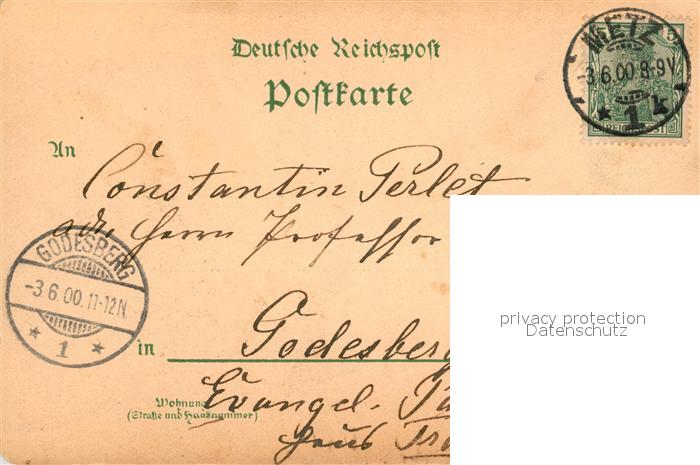 Deutsche Reichspost
Postkarte
METZ
-3.6.00.8-9V
* 1 k
REICHSPOST
An
Constantin Perlet
adr. Herrn Professor
GODESBERG
-3.6.00.11-12N.
* 1 *
privacy protection
Datenschutz
in Godesberg
Wohnung
(Straße und Hausnummer)
Evangel.
Haus